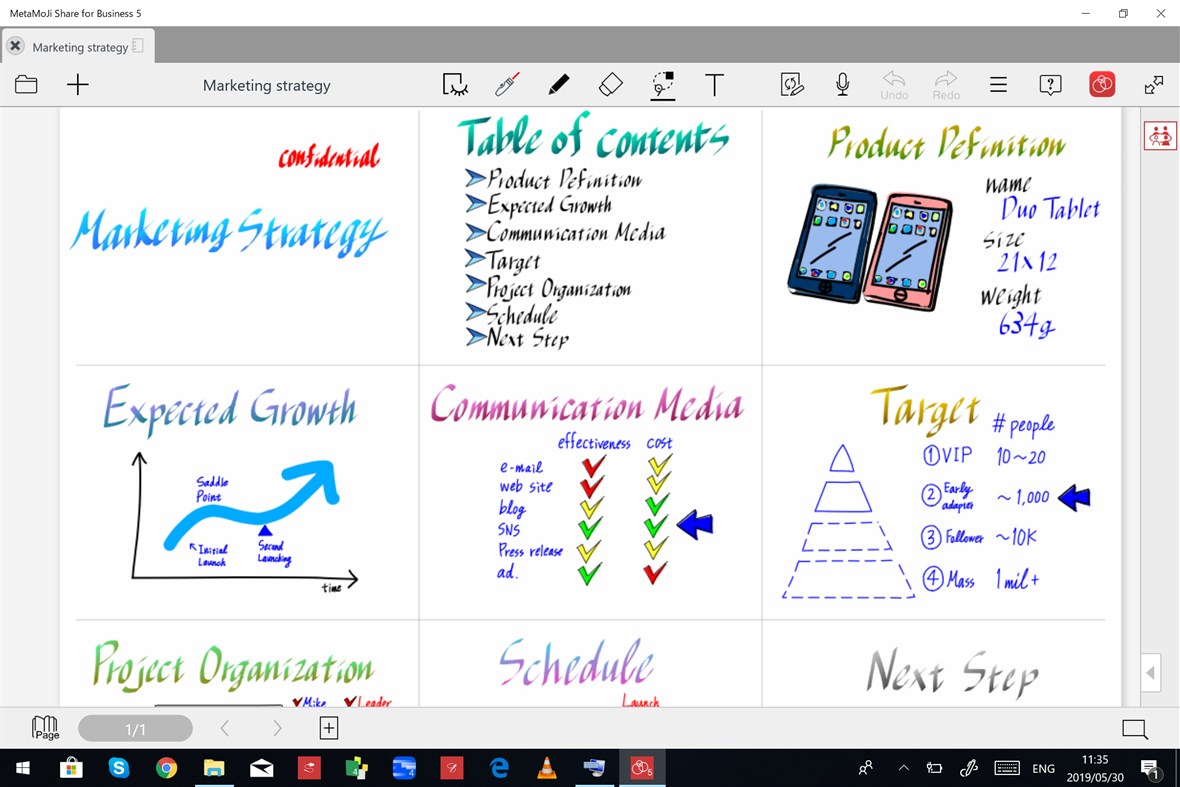 MetaMoJi Share for Business 5
Marketing strategy
Marketing strategy
T
Undo
Redo
confidential
Marketing Strategy
Table of contents
Product Definition
Expected Growth
Communication Media
Target
Project Organization
Schedule
Next Step
Product Definition
name
Duo Tablet
size
21x12
weight
634g
Expected Growth
Saddle
Point
Initial
Launch
Second
Launching
time
Communication Media
effectiveness cost
e-mail
web site
blog
SNS
Press release
ad.
Target
# people
① VIP 10~20
② Early adapter ~1,000
③ Follower ~10K
④ Mass 1mil+
Project Organization
Mike Leader
Schedule
Launch
Next Step
Page
1/1
ENG
11:35
2019/05/30
1